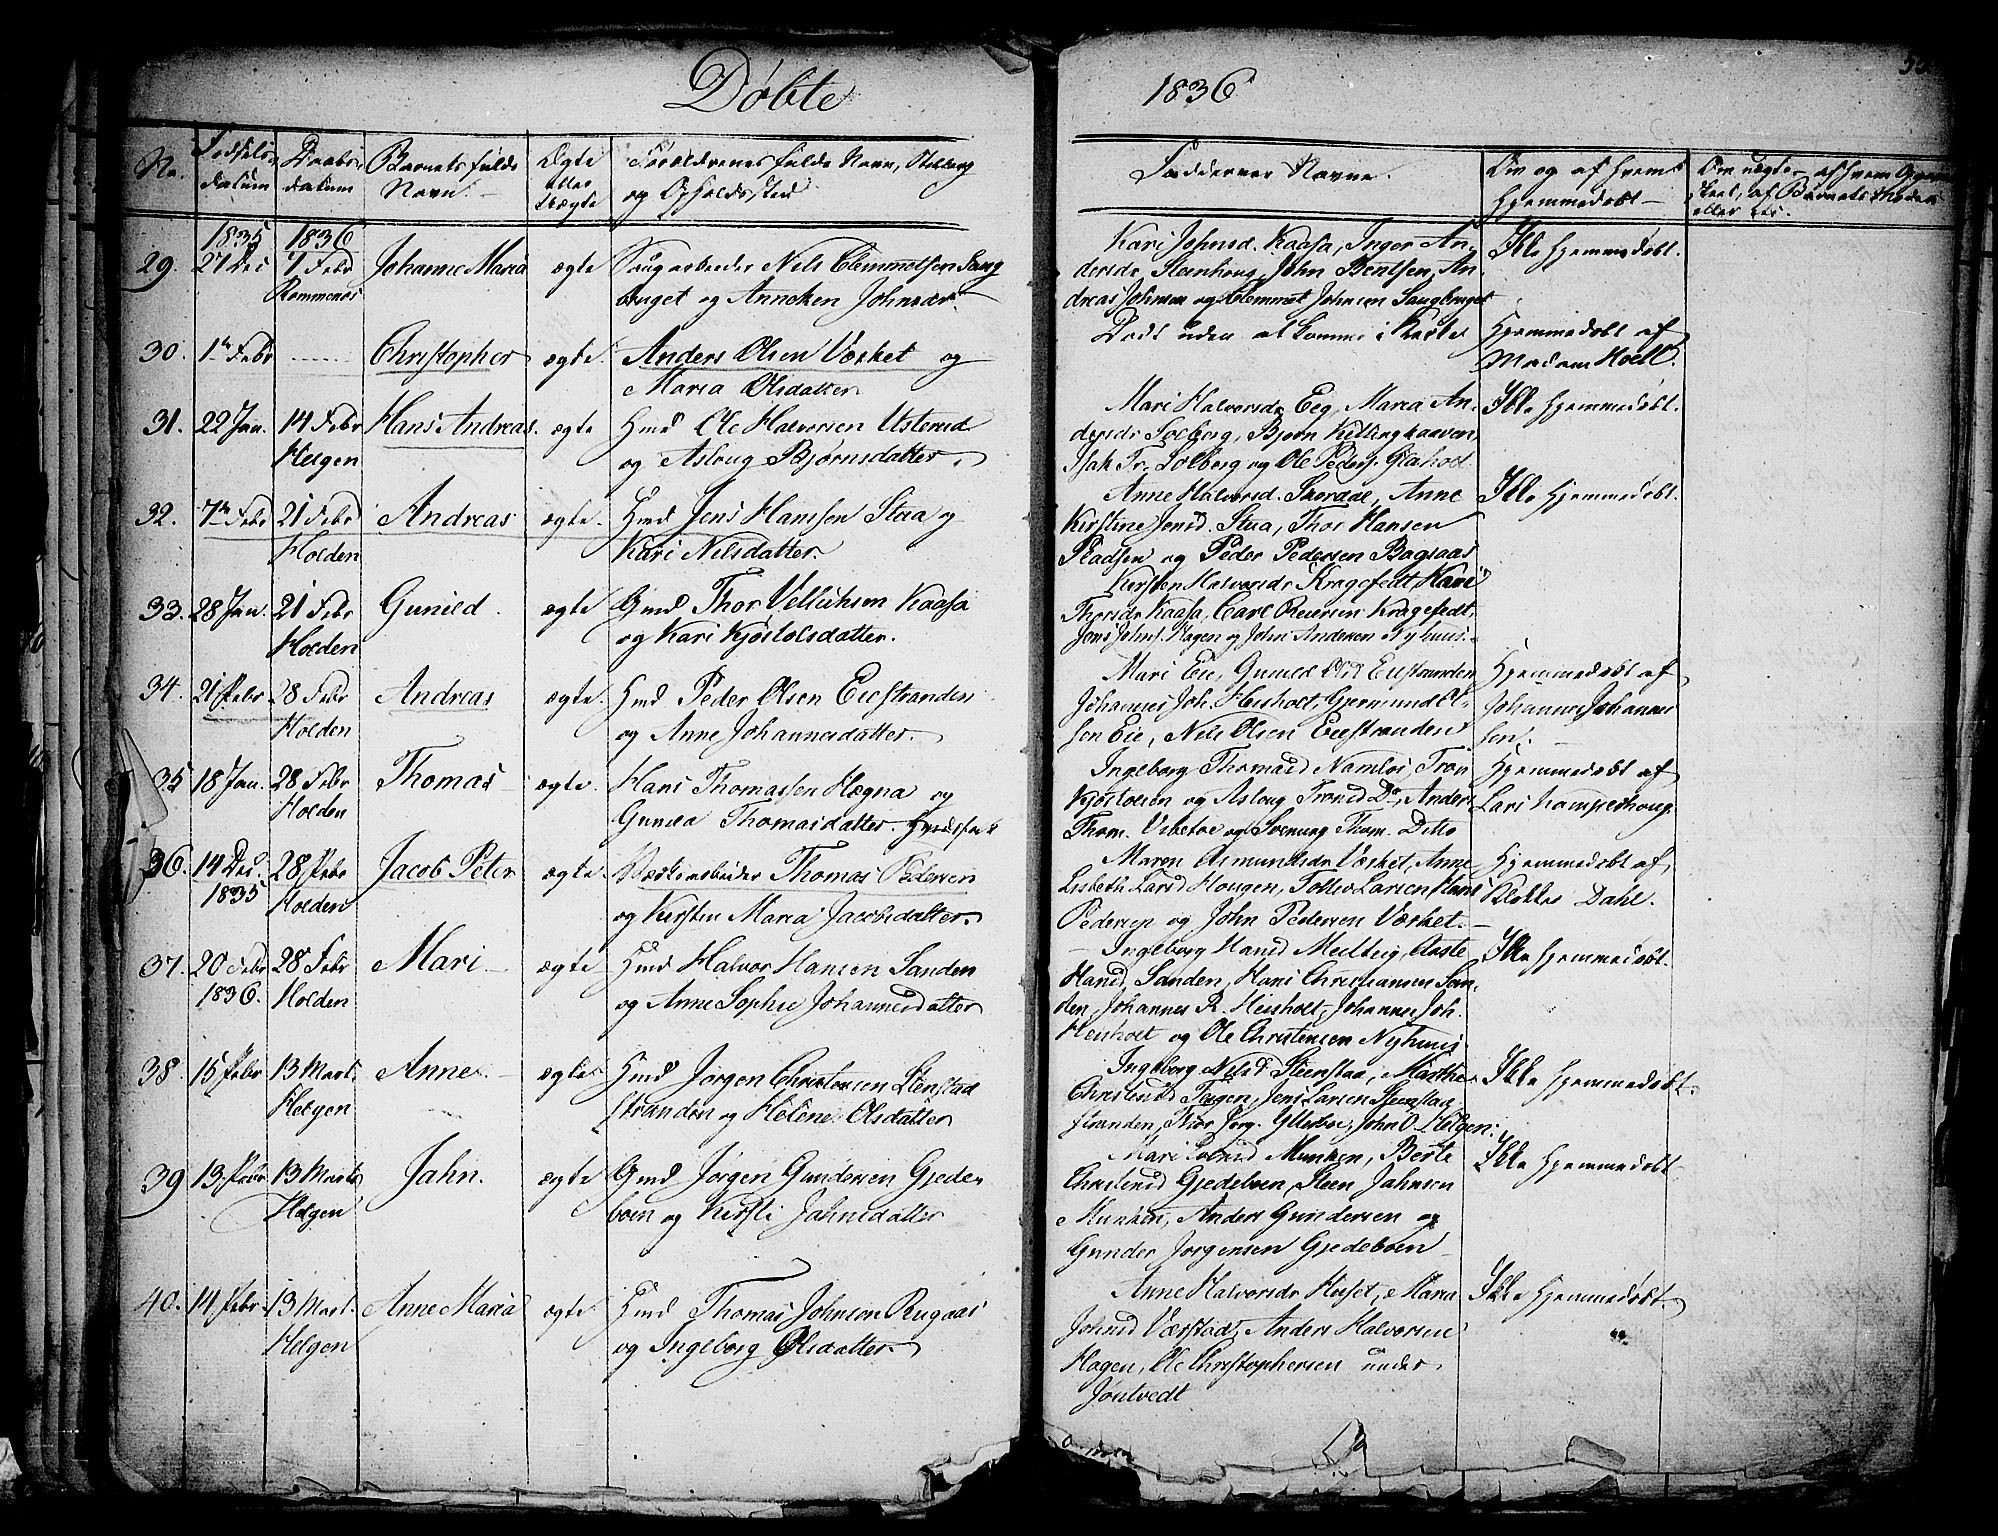 Døbte
1836
No.
Fødsels-
datum
Daabs-
datum
Barnets fulde
Navn
Ægte
eller
Uægte
Forældrenes fulde Navn, Stilling
og Opholdssted
Faddernes Navne.
Om og af hvem
hjemmedøbt
1835 1836
29. 27 Dec 7 Febr Johanne Maria ægte Saugarbeider Nils Clemmetsen Saug
Rommenæs bruget og Anneken Johnsdr.
Kari Johnsd. Kaasa, Inger An-
dersdr Steenhoug, John Bentsen, An-
dreas Johnsen og Clemmet Johnsen Saugbruget
Ikke hjemmedøbt.
30. 1te Febr Christopher ægte. Anders Olsen Værket og
Maria Olsdatter
Dødt uden at komme i Kirke
Hjemmedøbt af
Madam Hoell.
31. 22 Jan. 14 Febr Hans Andreas. ægte Hmd Ole Halvorsen Usterud
Helgen og Aslaug Bjørnsdatter.
Mari Halvorsdr Eeg, Maria An-
dersdr Solberg, Bjørn Killinghaaven,
Isak Tr. Solberg og Ole Peders.
Ikke hjemmedøbt.
32. 7de Febr 21 Febr Andreas ægte. Hmd Jens Hansen Staa og
Holden Kari Nilsdatter.
Anne Halvorsd. Skordal, Anne
Kirstine Jensd. Staa, Thor Hansen
Pladsen og Peder Pedersen Bagaas
Ikke hjemmedøbt.
33. 28 Jan. 21 Febr Gunild. ægte. Gmd Thor Kaasa
Holden og Kari Kjøstolsdatter.
Kirsten Halvorsdr Kragefedt, Kari
Thorsdr Kaasa, Carl Reiersen Kragefedt,
Jens Johns. Hagen og John Andersen Nyhuus.
34. 21 Febr 28 Febr Andreas ægte. Hmd Peder Olsen Eiestranden
Holden og Anne Johannesdatter.
Mari Eie, Gunild Olsd Eiestranden
Johannes Joh. Heisholt, Gjermund Ol-
sen Eie, Nils Olsen Eiestranden
Hjemmedøbt af
Johannes Johannes
sen.
35 18 Jan. 28 Febr Thomas ægte. Hans Thomassen Hægna og
Holden Gunild Thomasdatter.
Ingeborg Thomasd Namløs, Tron
Kjøstolsen og Aslaug Tronsd Do, Anders
Thom. og Svenung Thom. Ditto
Hjemmedøbt af
Lars Kamperhoug.
36. 14 Dec. 28 Febr Jacob Peter ægte. Værksarbeider Thomas Pedersen
1835 Holden og Kirsten Maria Jacobsdatter.
Maren Asmundsdr Værket, Anne
Lisbeth Larsd Hougen, Tollev Larsen, Hans
Pedersen og John Pedersen Værket.
Hjemmedøbt af
Dahl.
37. 20 Febr 28 Febr Mari ægte Hmd Halvor Hansen Sanden
1836. Holden og Anne Sophie Johannesdatter
Ingeborg Hansd Melteig, Aaste
Hansd. Sanden, Hans Christiansen San-
den, Johannes R. Heisholt, Johannes Joh.
Heisholt og Ole Christensen Nyhuus
Ikke hjemmedøbt.
38. 15 Febr 13 Mart. Anne. ægte. Hmd Jørgen Christensen Stenstad
Helgen stranden og Helene Olsdatter
Ingeborg Nilsd Steenstad, Marthe
Christensd Teigen, Jens Larsen Steenstad
stranden, Thor Jørg. Ytterbøe, John O. Helgen.
Ikke hjemmedøbt.
39 13 Febr 13 Marts Jahn. ægte Gmd Jørgen Gundersen Gjede-
Helgen boen og Kirsti Jahnsdatter
Mari Munken, Berte
Christensd Gjedeboen, Steen Jahnsen
Munken, Anders Gundersen og
Gunder Jørgensen Gjedeboen
Ikke hjemmedøbt
40. 14 Febr 13 Mart. Anne Maria ægte Hmd Thomas Johnsen Rugaas
Helgen og Ingeborg Olsdatter.
Anne Halvorsdr Huset, Maria
Johnsd Værstad, Anders Halvorsen
Hagen, Ole Christophersen under
Jøntvedt
Ikke hjemmedøbt.